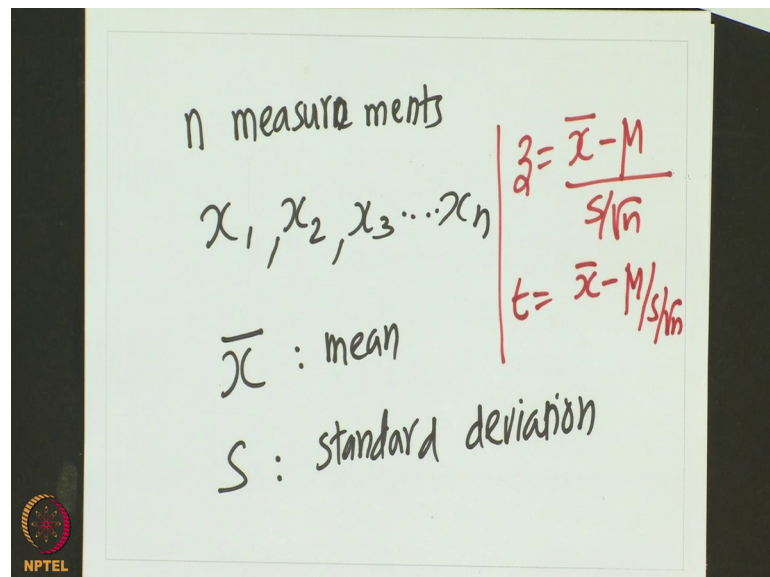 n measurements
x₁, x₂, x₃ .... xₙ
x̄ : mean
S : standard deviation
z = x̄ - μ / s/√n
t = x̄ - μ / s/√n
NPTEL